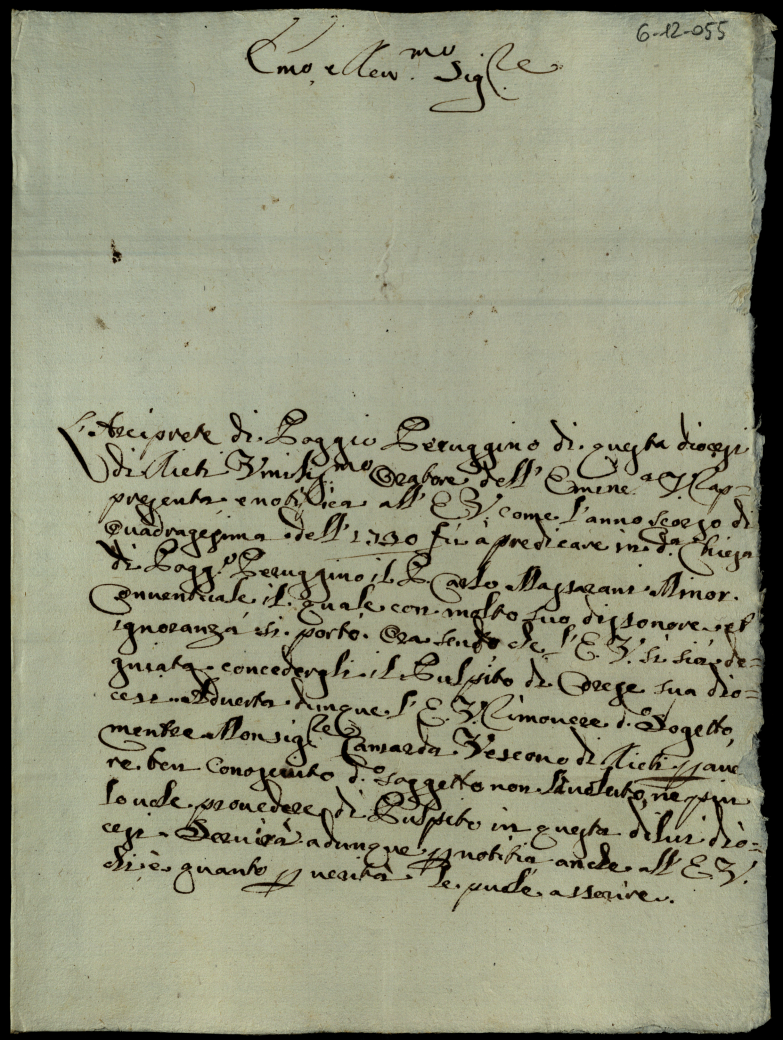 6-12-055
Emo, e Rev.mo Sig.re
L'Arciprete di Poggio Peruggino di questa diocesi
di Rieti Vmilis.mo Oratore dell' Emine.a V. Rap=
presenta, e notifica all' E.V. come l'anno scorso di
Quadragesima dell' 1730 fù à predicare in d.a Chiesa
di Pogg.o Peruggino il P. Carlo Massarani Minor.
Conventuale il quale con molto suo disonore, et
ignoranza si portò. Ora sendo che l'E.V. si sia de=
gniata concedergli il Pulpito di Corese sua dio=
cesi. Adverta dunque l'E.V. Rimovere d.o Sogetto,
mentre Monsig.re Camarda Vescovo di Rieti p ave
re ben conosciuto d.o saggetto non  ne più
lo vole provedere di Pulpito in questa di lui dio=
cesi. Servirà adunque p notitia anche all' E.V.
ch'è quanto p verità le puole asserire.